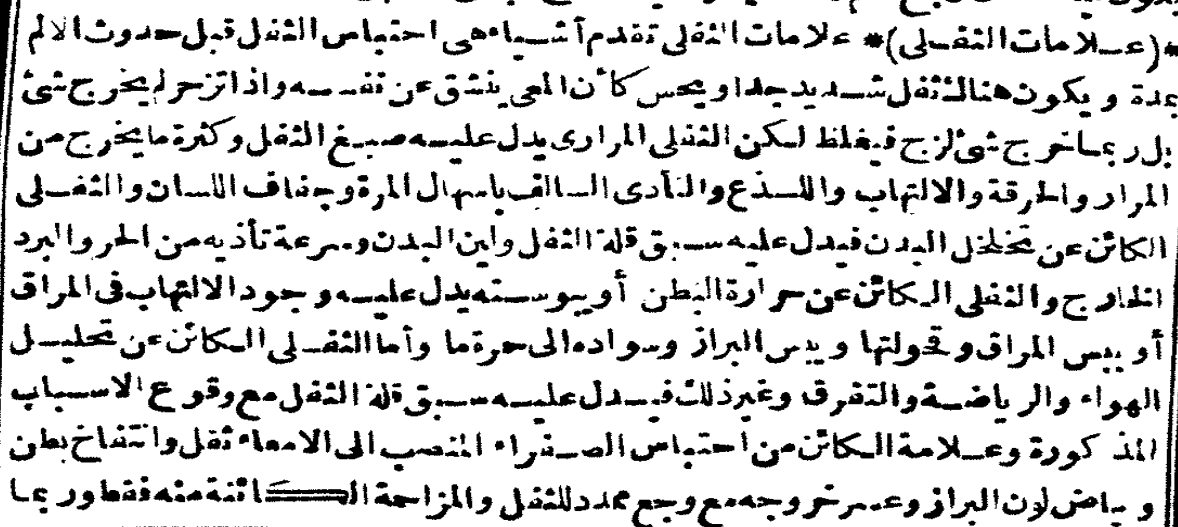 *(عــلامات الثفــلى)* علامات الثفلى تقدم أشــياء هى احتباس الثفل قبل حدوث الالم
بمدة ويكون هنالك ثقل شــديد جدا ويحس كأن المعى ينشق عن نفســه واذا تزحر لم يخرج شئ
بل ربمــا خرج شئ لزج فيغلظ لــكن الثفلى المرارى يدل عليــه صبــغ الثفل وكثرة ما يخرج من
المرار والحرقة والالتهاب واللــذع والتأدى السالف باسهال المرة وجفاف اللسان والثفــلى
الكائن عن تخلخل البدن فيدل عليه ســبق قلة الثفل ولين البدن وسرعة تأذيه من الحر والبرد
الخارج والثفلى الــكائن عن حرارة البطن أو يبوســته يدل عليــه وجود الالتهاب فى المراق
أو يبس المراق وقحولتها ويبس البراز وسواده الى حمرة ما وأما الثفــلى الــكائن عن تحليــل
الهواء والرياضــة والتفرق وغير ذلك فيــدل عليــه ســبق قلة الثفل مع وقوع الاســباب
المذكورة وعــلامة الــكائن من احتباس الصــفراء المنصب الى الامعاء ثقل وانتفاخ بطن
وبياض لون البراز وعسر خروجه مع وجع ممدد للثفل والمزاحمة الــكائنة منه فقط وربمــا